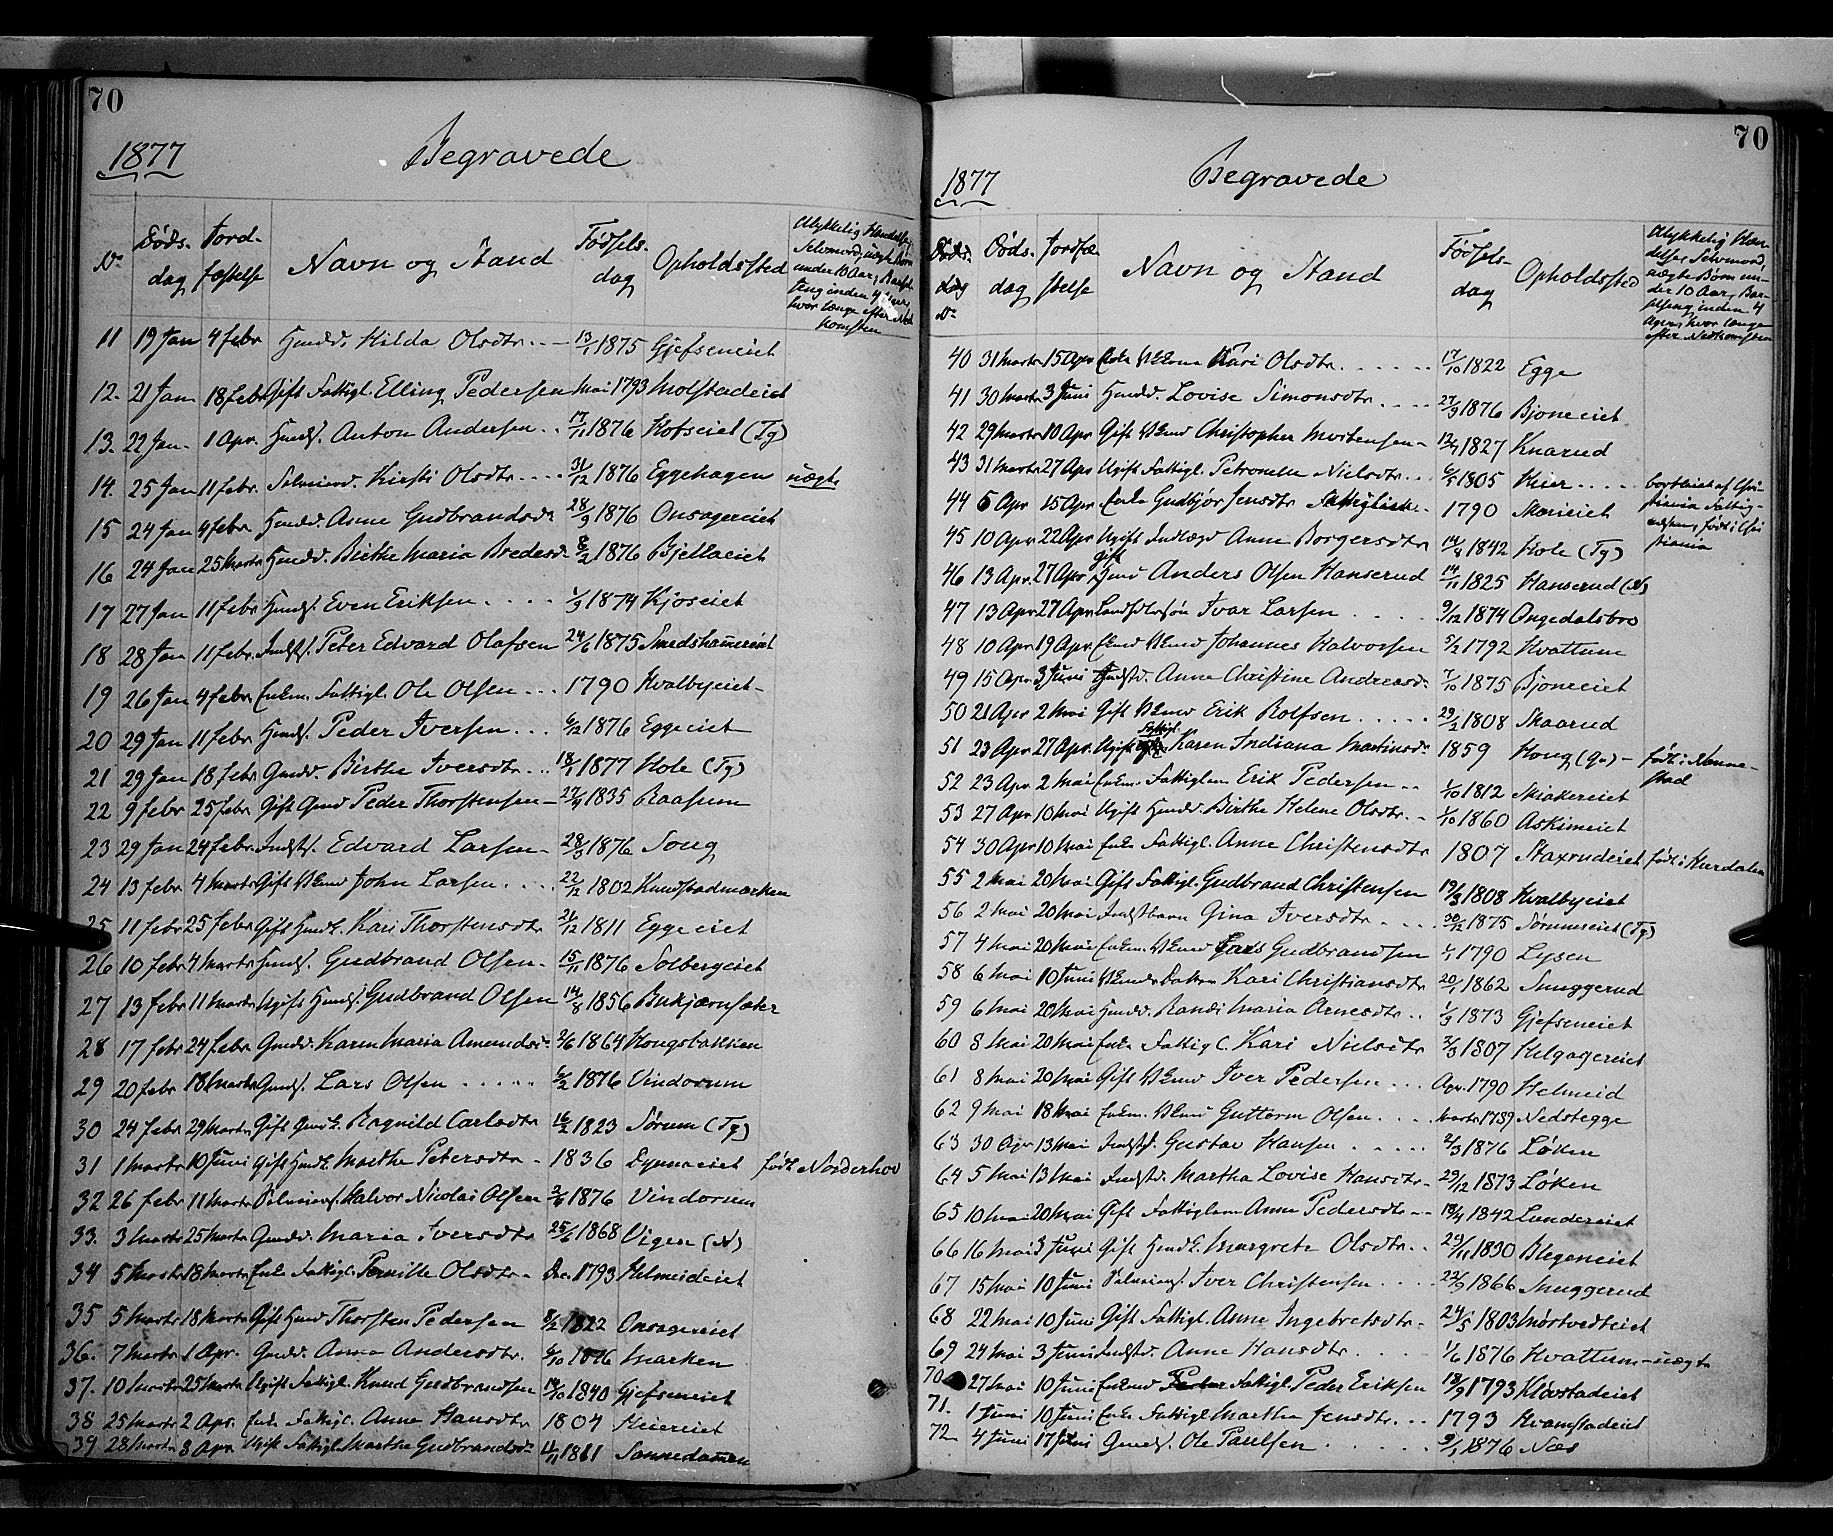 70
1877 Begravede
No Døds-dag Jord-fæstelse Navn og Stand Fødsels-dag Opholdssted Ulykkelig Hændelse, Selvmord, uægte Børn under 10 Aar, Barselseng inden 4 Uger, hvor længe efter Nedkomsten
11 19 Jan 4 febr Huusd. Hilda Olsdtr. 13/1 1875 Gjefseneiet
12. 21 Jan 18 febr Gift Fattigl. Elling Pedersen Mai 1793 Molstadeiet
13. 22 Jan. 1 Apr. Huuss. Anton Andersen 17/11 1876 Kofseiet (Tg)
14. 25 Jan 11 febr. Kirsti Olsdtr. 31/12 1876 Eggehagen uægte
15 24 Jan 4 febr. Huusd. Anne Gudbrandsd. 28/9 1876 Onsagereiet
16 24 Jan 25 Marts Huusd. Birthe Maria Bredesd. 8/2 1876 Bjellaeiet
17 27 Jan 11 febr Huuss. Even Eriksen 1/9 1874 Kjoseiet
18 28 Jan 11 febr. Indss. Peter Edvard Olafsen 24/6 1875 Smedshammereiet
19 26 Jan 4 febr. Enkem. Fattigl. Ole Olsen 1790 Hvalbyeiet
20 29 Jan 11 febr Huuss. Peder Iversen 6/2 1876 Eggeeiet
21 29 Jan 18 febr Gmdd. Birthe Iversdtr. 18/1 1877 Hole (Tg)
22 9 febr 25 febr Gift Gmd Peder Thorstensen 1835 Raasum
23 29 Jan 24 febr. Indss. Edvard Larsen 1876 Soug
24 13 febr 4 Marts Gift John Larsen 22/12 1802
25 11 febr 25 febr Gift Huusk. Kari Thorstensdtr 1811 Eggeeiet
26 10 febr 4 Marts Huuss. Gudbrand Olsen 15/11 1876 Solbergeiet
27 13 febr 11 Marts Ugift Huuss. Gudbrand Olsen 14/8 1856
28 17 febr 24 febr Gmdd. Karen Maria Amundsd. 1864 Kongsbakken
29 20 febr 18 Marts Gmds. Lars Olsen 1876 Vindorum
30 24 febr 29 Marts Gift Gmdk. Ragnild Carlsdtr 16/2 1823 Sørum (Tg)
31 1 Marts 10 Juni Gift Huusk. Marthe Petersdtr 1836 Dynnaeiet født Norderhov
32 26 febr 11 Marts Halvor Nicolai Olsen 1876 Vindorum
33. 3 Marts 25 Marts Gmdd. Maria Iversdtr 25/6 1868 Vigen (N)
34 5 Marts 18 Marts Enke Fattigl. Pernille Olsdtr Dec. 1793 Helmeideiet
35 5 Marts 18 Marts Gift Huusmd Thorsten Pedersen 8/2 1822 Onsagereiet
36. 7 Marts 1 Apr. Gmdd. Anna Andersdtr. 1876 Marken
37. 10 Marts 25 Marts Ugift Fattigl. Knud Gudbrandsen 1840 Gjefseneiet
38 25 Marts 2 Apr. Enke Fattigl. Anne Hansdtr 1804 Heiereiet
39 28 Marts 8 Apr. Ugift Fattigl. Marthe Gudbrandsd. 1861 Sannedammen
70
1877 Begravede
Døds-dag No Døds-dag Jordfæ-stelse Navn og Stand Fødsels-dag Opholdssted Ulykkelig Hæn-delse, Selvmord, uægte Børn un-der 10 Aar, Bar-selseng inden 4 Uger, hvor længe efter Nedkomsten
40 31 Marts 15 Apr Enke Kari Olsdtr. 17/10 1822 Egge
41 30 Marts 3 Juni Huusd. Lovise Simonsdtr. 27/9 1876 Bjoneeiet
42 29 Marts 10 Apr Gift Christopher Mortensen 1827 Knarud
43 31 Marts 27 Apr Ugift Fattigl. Petronelle Nielsdtr. 1805 Heier bortleiet af Chri-
44 6 Apr 15 Apr Enke Gudbjør Jensdtr Fattiglem 1790 Mæreiet stiania Fattig-
45 10 Apr 22 Apr Ugift Indlagd Anne Borgersdtr 1842 Hole (Tg) født i Chri-stiania
46 13 Apr 27 Apr gift Gmd Anders Olsen Hanserud 14/11 1825 Hanserud (N)
47 13 Apr 27 Apr Ivar Larsen 9/12 1874 Ongedalsbro
48 10 Apr 19 Apr Johannes Halvorsen 5/2 1792 Hvattum
49 15 Apr 3 Juni Anne Christine Andreasd. 7/10 1875 Bjoneeiet
50 21 Apr 2 Mai Gift Erik Rolfsen 1808 Skaarud
51 23 Apr 27 Apr. Ugift Fattigl. Karen Indiana Martinsd. 1859 Houg (Gr) født i Nanne-stad
52 23 Apr 2 Mai Enkem. Fattiglem Erik Pedersen 1/10 1812 Skiakereiet
53 27 Apr 10 Mai Ugift Huusd. Birthe Helene Olsdtr. 1/10 1860 Askimeiet
54 30 Apr 10 Mai Enke Fattigl. Anne Christensdtr 1807 Staxrudeiet født i Hurdalen
55 2 Mai 20 Mai Gift Fattigl. Gudbrand Christensen 19/3 1808 Hvalbyeiet
56 2 Mai 20 Mai Indstbarn Gina Iversdtr 30/12 1875 Sørumseiet (Tg)
57 4 Mai 20 Mai Enkem. Lars Gudbrandsen 1790 Lysen
58 6 Mai 10 Juni Datter Kari Christiansdtr 20/1 1862 Snuggerud
59 6 Mai 20 Mai Huusd. Randi Maria Arnesdtr. 1/3 1873 Gjefseneiet
60 8 Mai 20 Mai Enke Fattigl. Kari Nielsdtr 1807 Helgagereiet
61 8 Mai 20 Mai Gift Iver Pedersen Apr. 1790 Helmeid
62 9 Mai 18 Mai Enkem. Guttorm Olsen Marts 1789 Nedstegge
63 30 Apr 13 Mai Indsts. Gustav Hansen 2/3 1876 Løken
64 5 Mai 13 Mai Indstd. Martha Lovise Hansdtr. 29/12 1873 Løken
65 10 Mai 20 Mai Gift Fattiglem Anne Pedersdtr 18/4 1842 Lundereiet
66 16 Mai 3 Juni Gift Huusk. Margrete Olsdtr. 29/11 1830 Blegeneiet
67 15 Mai 10 Juni Iver Christensen 1866 Snuggerud
68 22 Mai 10 Juni Gift Fattigl. Anne Ingebretsdtr. 24/5 1803 Mørtvedteiet
69 24 Mai 3 Juni Indstd. Anne Hansdtr. 1/6 1876 Hvattum uægte
70 27 Mai 10 Juni Enkemd Fattigl. Peder Eriksen 18/9 1793 Kløvstadeiet
71. 1 Juni 10 Juni Enke Fattigl Marthe Jensdtr. 1793 Hvamstadeiet
72 4 Juni 17 Juni Gmds. Ole Paulsen 9/1 1876 Næs